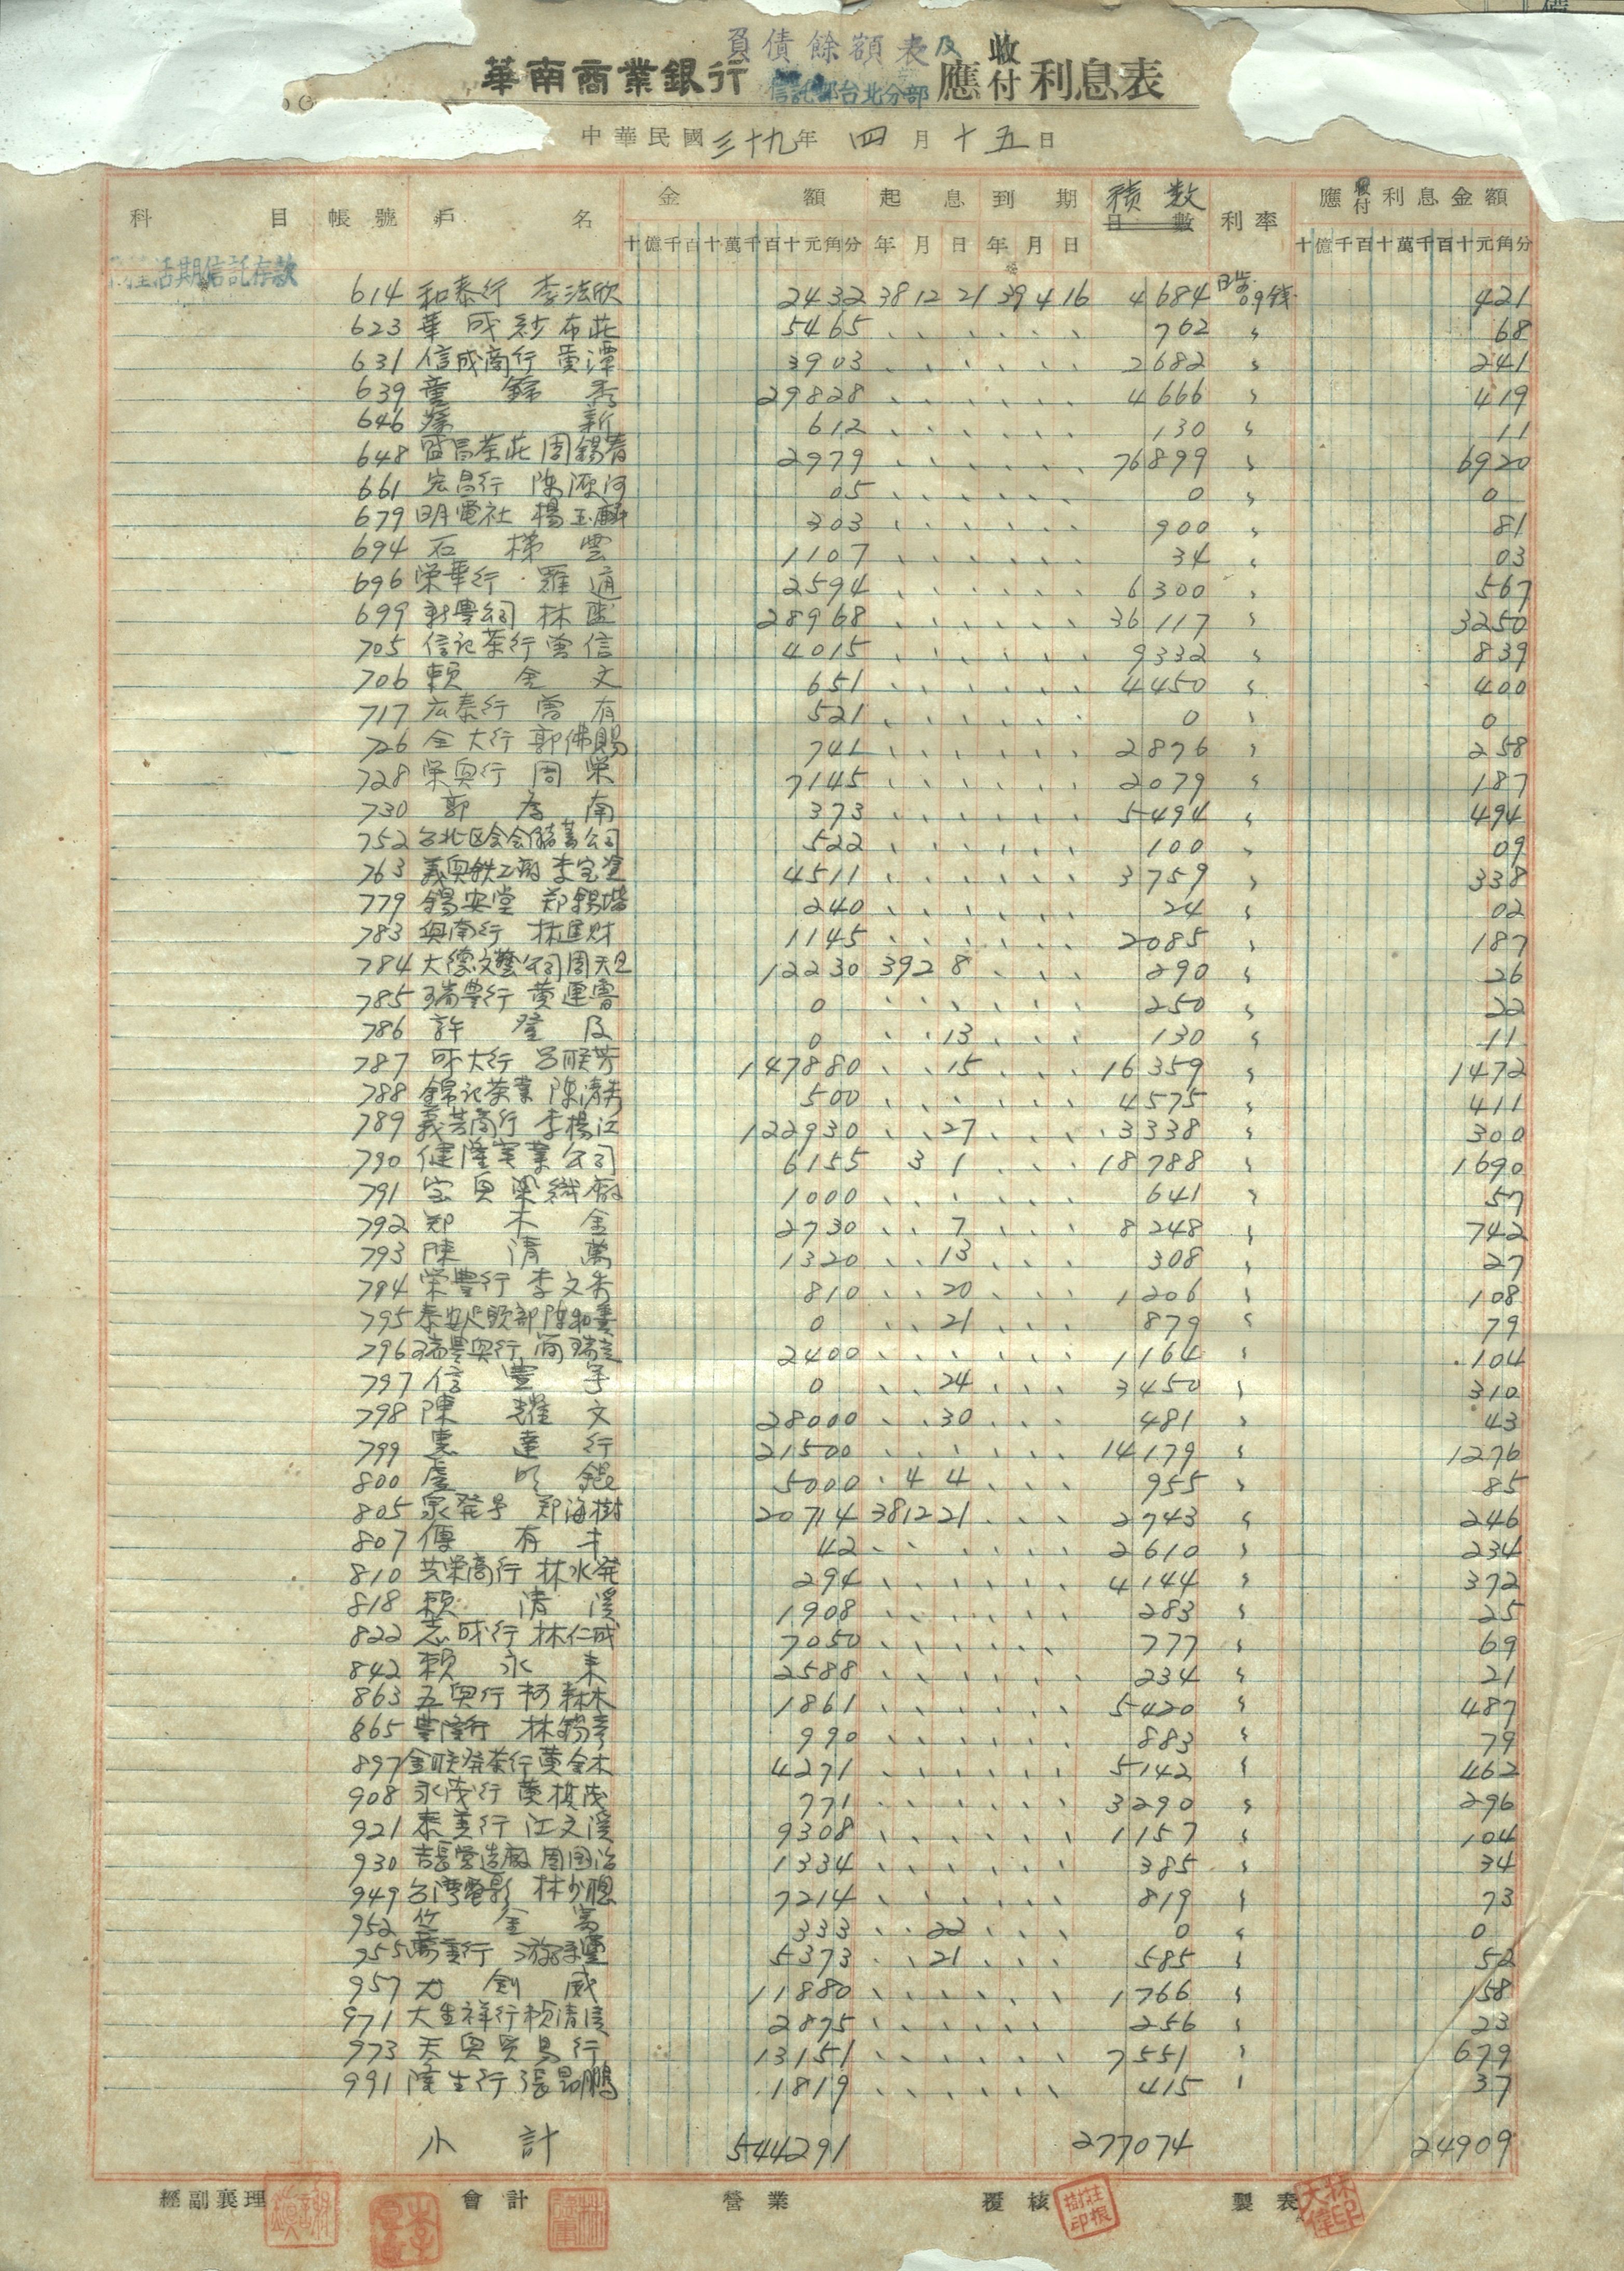 負債餘額表及
華南商業銀行 信託部台北分部 應收付利息表
中華民國三十九年 四月十五日
科目 帳號 戶名 金額 起息 到期 積數 利率 應付利息金額
十億千百十萬千百十元角分 年月日 年月日 日數 十億千百十萬千百十元角分
活期信託存款
614 和泰行 李法欣 2432 38 12 21 39 4 16 4684 日歩.09錢 421
623 華成紗布莊 5465 、、、、、、 762 〃 68
631 信成商行 黄潭 3903 、、、、、、 2682 〃 241
639 童錦秀 29828 、、、、、、 4666 〃 419
646 蔡新 612 、、、、、、 130 〃 11
648 盛昌茶莊 周錫春 2979 、、、、、、 76899 〃 6920
661 宏昌行 陳源河 05 、、、、、、 0 〃 0
679 明電社 楊玉麟 303 、、、、、、 900 〃 81
694 石梯雲 1107 、、、、、、 34 〃 03
696 榮華行 羅通 2594 、、、、、、 6300 〃 567
699 新豐公司 林 28968 、、、、、、 36117 〃 3250
705 信記茶行 曾信 4015 、、、、、、 9332 〃 839
706 賴金文 651 、、、、、、 4450 〃 400
717 広泰行 曾有 521 、、、、、、 0 〃 0
726 全大行 郭佛賜 741 、、、、、、 2876 〃 258
728 榮興行 周榮 7145 、、、、、、 2079 〃 187
730 郭南 373 、、、、、、 5494 〃 494
752 台北区合会儲蓄公司 522 、、、、、、 100 〃 09
763 義興鉄工廠 李宝 4511 、、、、、、 3759 〃 338
779 錫安堂 郑錫 240 、、、、、、 24 〃 02
783 興南行 林進財 1145 、、、、、、 2085 〃 187
784 大德文藝公司 周天 12230 39 2 8 、、、 290 〃 26
785 瑞豐行 黄運 0 、、、、、、 250 〃 22
786 許登 0 、、13 、、、 130 〃 11
787 大行 呂联芳 147880 、、15 、、、 16359 〃 1472
788 錦記茶業 陳清秀 500 、、、、、、 4575 〃 411
789 義芳商行 李楊江 122930 、、27 、、、 3338 〃 300
790 健隆实業公司 6155 、3 1 、、、 18788 〃 1690
791 宝興染織廠 1000 、、、、、、 641 〃 57
792 郑木金 2730 、、7 、、、 8248 〃 742
793 陳清萬 1320 、、13 、、、 308 〃 27
794 榮豐行 李文秀 810 、、20 、、、 1206 〃 108
795 泰安 陳 0 、、21 、、、 879 〃 79
796 瑞興行 簡瑞 2400 、、、、、、 1164 〃 104
797 信豐号 0 、、24 、、、 3450 〃 310
798 陳耀文 28000 、、30 、、、 481 〃 43
799 惠達行 21500 、、、、、、 14179 〃 1276
800 盧明錕 5000 、4 4 、、、 955 〃 85
805 泉発号 郑海樹 20714 38 12 21 、、、 2743 〃 246
807 傅有才 42 、、、、、、 2610 〃 234
810 共榮商行 林水発 294 、、、、、、 4144 〃 372
818 賴清溪 1908 、、、、、、 283 〃 25
822 志成行 林仁成 7050 、、、、、、 777 〃 69
842 賴永来 2588 、、、、、、 234 〃 21
863 五興行 柯森木 1861 、、、、、、 5420 〃 487
865 豐隆行 林錫 990 、、、、、、 883 〃 79
897 金联発茶行 黄金木 4271 、、、、、、 5142 〃 462
908 永茂行 黄棋茂 771 、、、、、、 3290 〃 296
921 泰美行 江文溪 9308 、、、、、、 1157 〃 104
930 吉長营造廠 周国治 1334 、、、、、、 385 〃 34
949 台灣電影 林少聰 7214 、、、、、、 819 〃 73
952 金 333 、、22 、、、 0 〃 0
955 行 游 5373 、、21 、、、 585 〃 52
957 尤剣威 11880 、、、、、、 1766 〃 158
971 大生祥行 賴清 2875 、、、、、、 256 〃 23
973 天興貿易行 13151 、、、、、、 7551 〃 679
991 隆生行 張昆鵬 1819 、、、、、、 415 〃 37
小計 544291 277074 24909
經副襄理 會計 營業 覆核 製表
莊根樹印 林大偉印